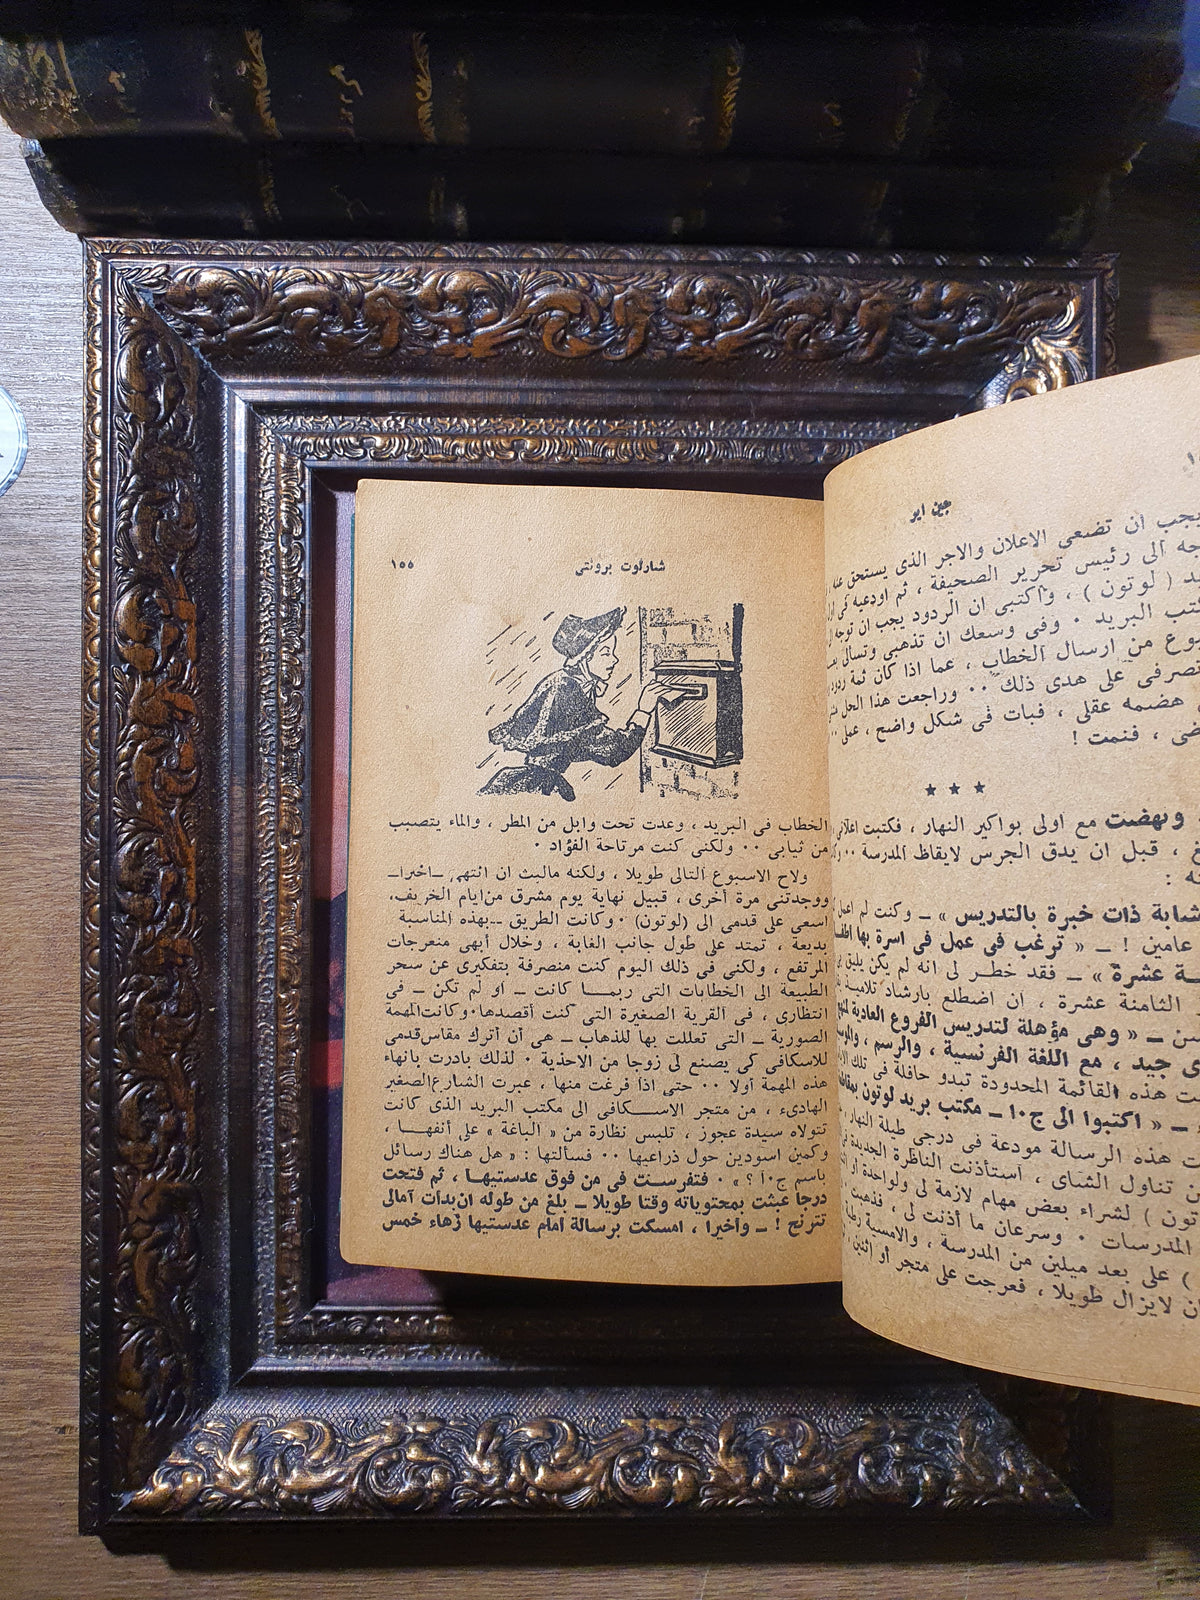 جين اير
يجب ان تضعى الاعلان والاجر الذى يستحق عنه
جه الى رئيس تحرير الصحيفة ، ثم اودعيه فى
د ( لوتون ) ، واكتبى ان الردود يجب ان توجه
كتب البريد ٠ وفى وسعك ان تذهبى وتسألى
بوع من ارسال الخطاب ، عما اذا كان ثمة ردود
تصرفى على هدى ذلك ٠٠ وراجعت هذا الحل
هضمه عقلى ، فبات فى شكل واضح ، عملى ٠٠
ضى ، فنمت !
★ ★ ★
ونهضت مع اولى بواكير النهار ، فكتبت اعلانى
غ ، قبل ان يدق الجرس لايقاظ المدرسة ٠٠
ته :
شابة ذات خبرة بالتدريس » ــ وكنت لم اعمل
عامين ! ــ « ترغب فى عمل فى اسرة بها
ـة عشرة » ــ فقد خطر لى انه لم يكن يليق
الثامنة عشرة ، ان اضطلع بارشاد تلاميذ
سن ــ « وهى مؤهلة لتدريس الفروع العادية
ى جيد ، مع اللغة الفرنسية ، والرسم ،
ت هذه القائمة المحدودة تبدو حافلة فى تلك
ــ « اكتبوا الى ج٠ا ــ مكتب بريد لوتون
ت هذه الرسالة مودعة فى درجى طيلة النهار
ن تناول الشاى ، استأذنت الناظرة الجديدة
تون ) لشراء بعض مهام لازمة لى ولواحدة او
المدرسات ٠ وسرعان ما أذنت لى ، فذهبت
) على بعد ميلين من المدرسة ، والامسية
ان لايزال طويلا ، فعرجت على متجر او اثنين ،
شارلوت برونتى
١٥٥
الخطاب فى البريد ، وعدت تحت وابل من المطر ، والماء يتصبب
من ثيابى ٠٠ ولكنى كنت مرتاحة الفؤاد ٠
ولاح الاسبوع التالى طويلا ، ولكنه مالبث ان انتهى ــ اخيراــ
ووجدتنى مرة أخرى ، قبيل نهاية يوم مشرق من ايام الخريف،
اسعى على قدمى الى (لوتون) ٠ وكانت الطريق ــ بهذه المناسبة
بديعة ، تمتد على طول جانب الغابة ، وخلال أبهى منعرجات
المرتفع ، ولكنى فى ذلك اليوم كنت منصرفة بتفكيرى عن سحر
الطبيعة الى الخطابات التى ربمـــا كانت ــ او لم تكن ــ فى
انتظارى ، فى القرية الصغيرة التى كنت أقصدها٠وكانت المهمة
الصورية ــ التى تعللت بها للذهاب ــ هى أن أترك مقاس قدمى
للاسكافى كى يصنع لى زوجا من الاحذية ٠ لذلك بادرت بانهاء
هذه المهمة أولا ٠٠ حتى اذا فرغت منها ، عبرت الشارع الصغير
الهادىء ، من متجر الاســـكافى الى مكتب البريد الذى كانت
تتولاه سيدة عجوز ، تلبس نظارة من « الباغة » على أنفهـا ،
وكمين اسودين حول ذراعيها ٠٠ فسألتها : « هل هناك رسائل
باسم ج٠ا ؟ » ٠ فتفرست فى من فوق عدستيها ، ثم فتحت
درجا عبثت بمحتوياته وقتا طويلا ــ بلغ من طوله ان بدأت آمالى
تترنح ! ــ وأخيرا ، امسكت برسالة أمام عدستيها زهاء خمس